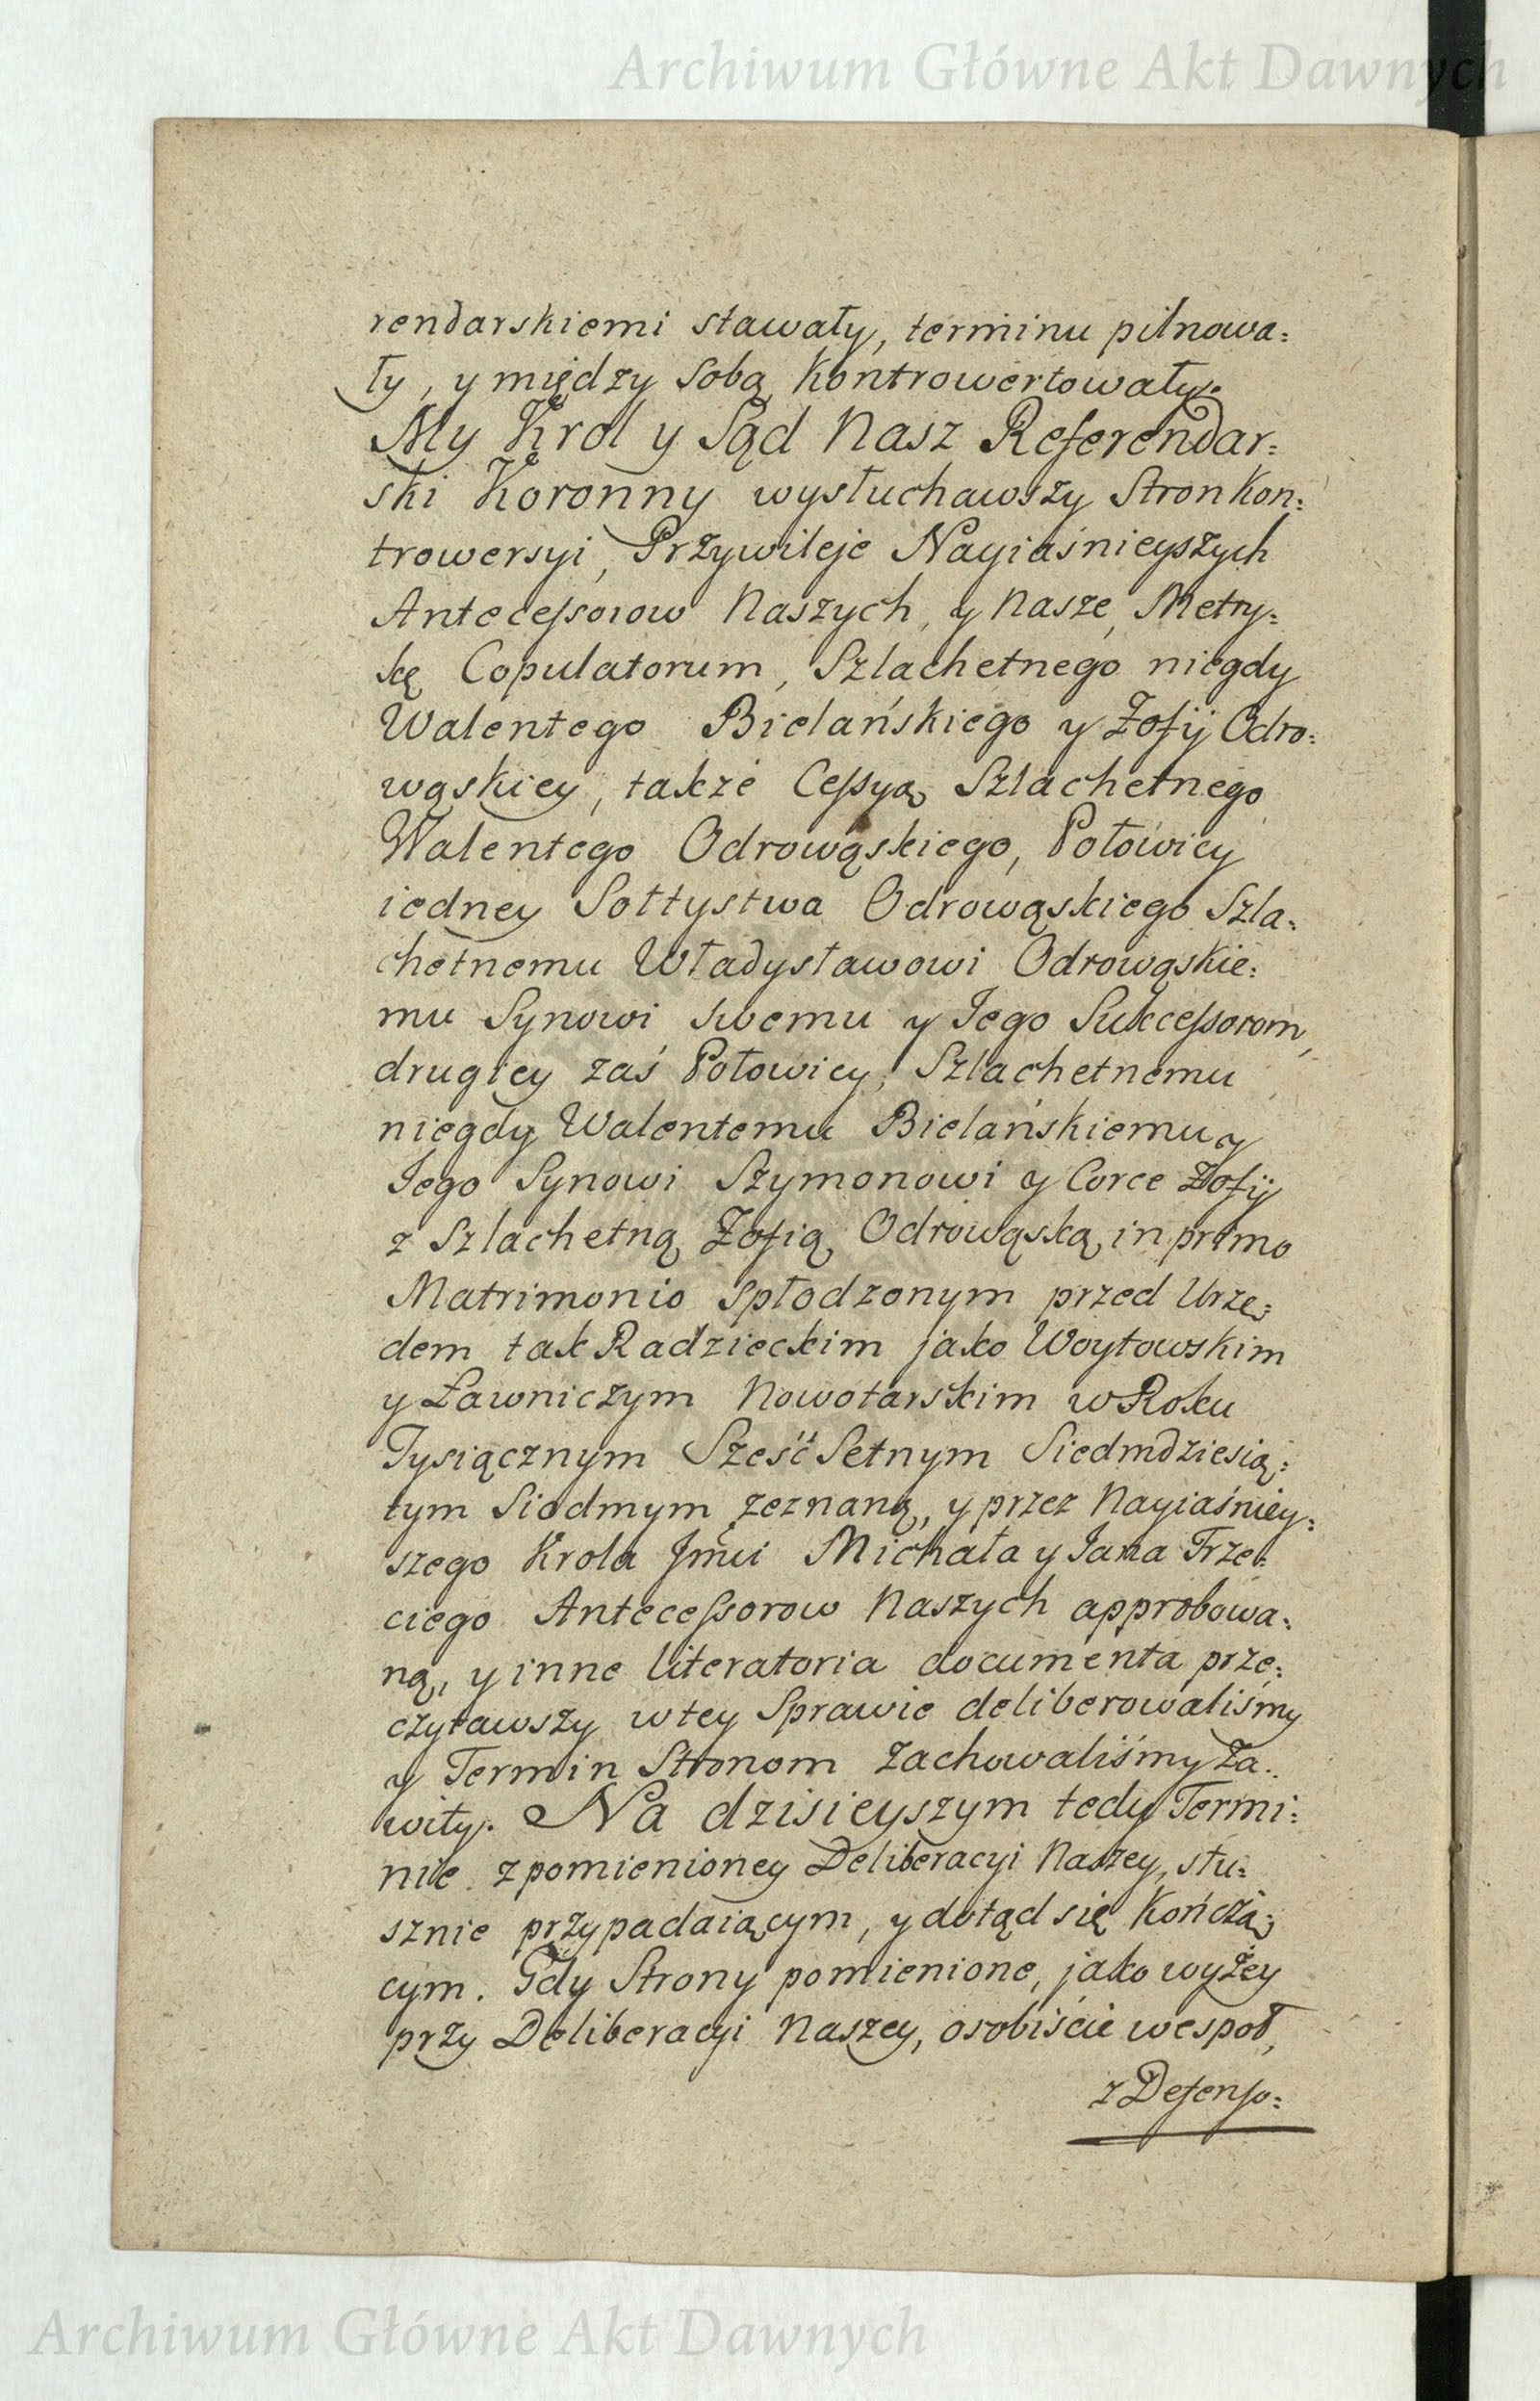 Archiwum Główne Akt Dawnych
rendarskiemi stawały, terminu pilnowa:
ły, y między sobą kontrowertowały.
My Krol y Sąd Nasz Referendar:
ski Koronny wysłuchawszy Stron Kon:
trowersyi, Przywileje Nayiaśnieyszych
Antecessorow Naszych, y Nasze, Metry:
kę Copulatorum, Szlachetnego niegdy
Walentego Bielańskiego y Zofij Odro:
wąskiey, także Cessyą Szlachetnego
Walentego Odrowąskiego, Połowicy
iedney Sołtystwa Odrowąskiego Szla:
chetnemu Władysławowi Odrowąskie:
mu Synowi swemu y Jego Sukcessorom,
drugiey zaś Połowicy, Szlachetnemu
niegdy Walentemu Bielańskiemu y
Jego Synowi Szymonowi y Corce Zofij
z Szlachetną Zofią Odrowąską in primo
Matrimonio spłodzonym przed Urzę:
dem tak Radzieckim jako Woytowskim
y Ławniczym Nowotarskim w Roku
Tysiącznym Sześć Setnym Siedmdziesią:
tym Siodmym zeznaną, y przez Nayiaśniey:
szego Krola Jmci Michała y Jana Trze:
ciego Antecessorow Naszych approbowa:
ną, y inne literatoria documenta prze:
czytawszy w tey Sprawie deliberowaliśmy
y Termin Stronom zachowaliśmy Za:
wity. Na dzisieyszym tedy Termi:
nie z pomienioney Deliberacyi Naszey, słu:
sznie przypadaiącym, y dotąd się Kończą:
cym. Gdy Strony pomienione, jako wyżey
przy Deliberacyi Naszey, osobiście wespoł,
z Defenso:
Archiwum Główne Akt Dawnych